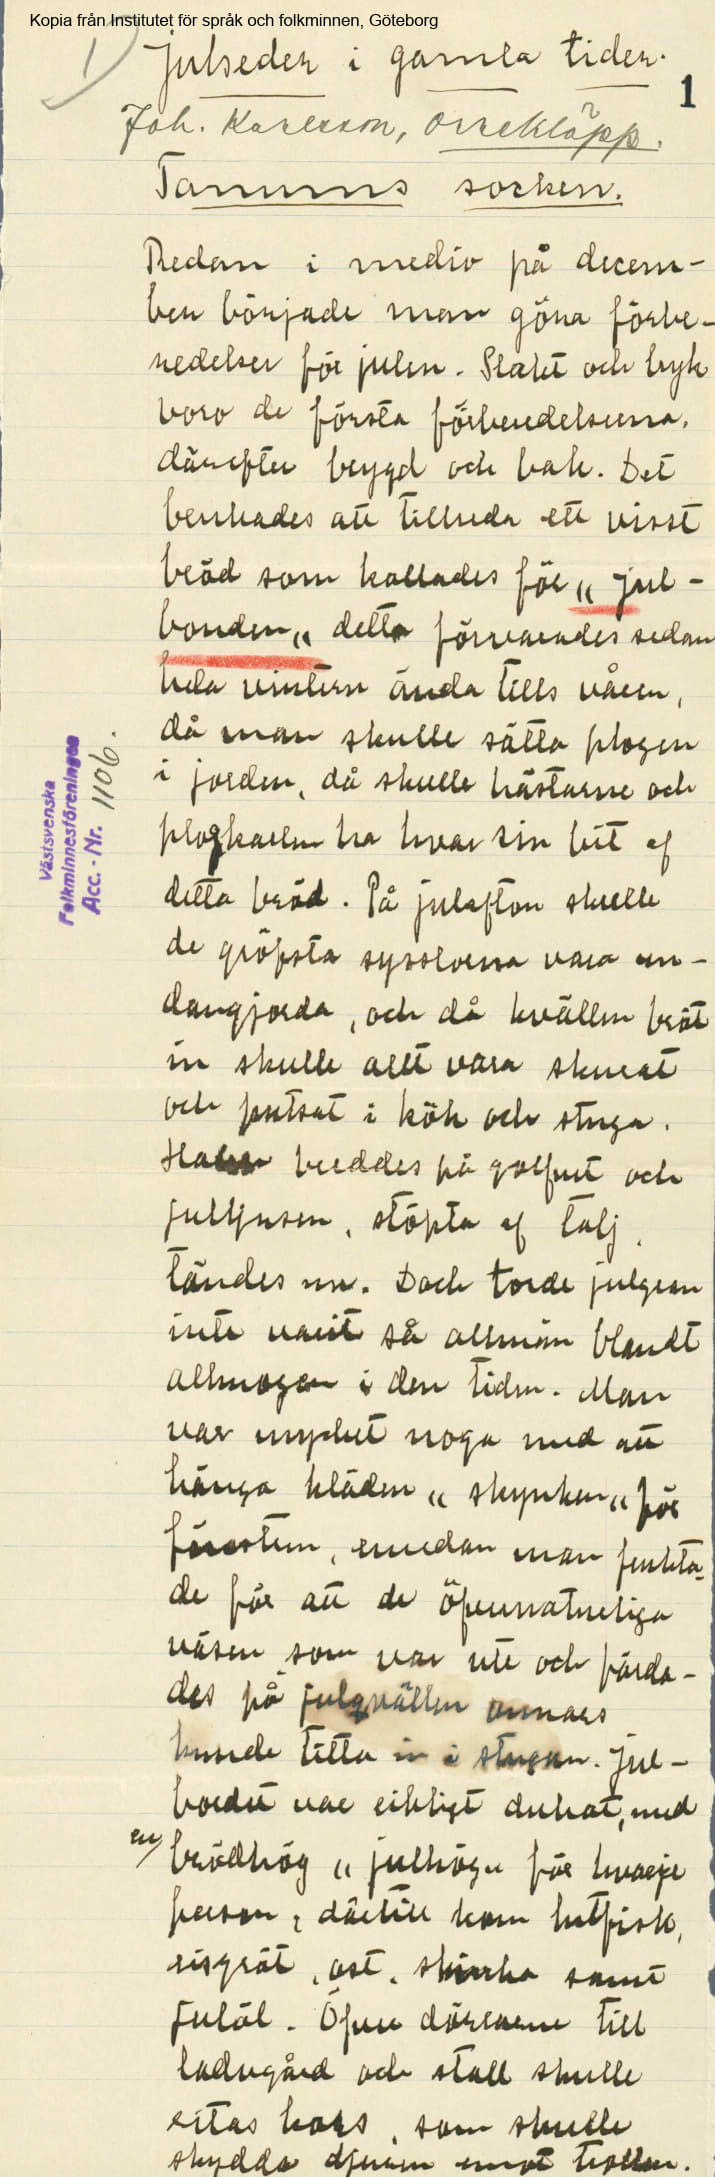 Kopia från Institutet för språk och folkminnen, Göteborg
1)
Julseder i gamla tider.
1
Joh. Karlsson, Orrekläpp.
Tanums socken.
Redan i medio på decem-
ber började man göra förbe-
redelser för julen. Slakt och byk
voro de första förberedelserna,
därefter brygd och bak. Det
brukades att tillreda ett visst
bröd som kallades för „Jul-
bonden„ detta förvarades sedan
hela vintern ända tills våren,
då man skulle sätta plogen
i jorden, då skulle hästarne och
plogkarlen ha hvar sin bit af
detta bröd. På julafton skulle
de gröfsta sysslorna vara un-
dangjorda, och då kvällen bröt
in skulle allt vara skurat
och putsat i kök och stuga.
Halm breddes på golfvet och
julljusen, stöpta af talj,
tändes nu. Dock torde julgran
inte varit så allmän blandt
allmogen i den tiden. Man
var mycket noga med att
hänga kläden „skynken„ för
fönstren, emedan man frukta-
de för att de öfvernaturliga
väsen som var ute och färda-
des på julqvällen annars
kunde titta in i stugan. Jul-
bordet var riktigt dukat, med
en brödhög „julhög„ för hvarje
person, därtill kom lutfisk,
risgröt, ost, skinka samt
julöl. Öfver dörrarne till
ladugård och stall skulle
ritas kors, som skulle
skydda djuren emot trollen.
Västsvenska
Folkminnesföreningen
Acc.-Nr. 1106.